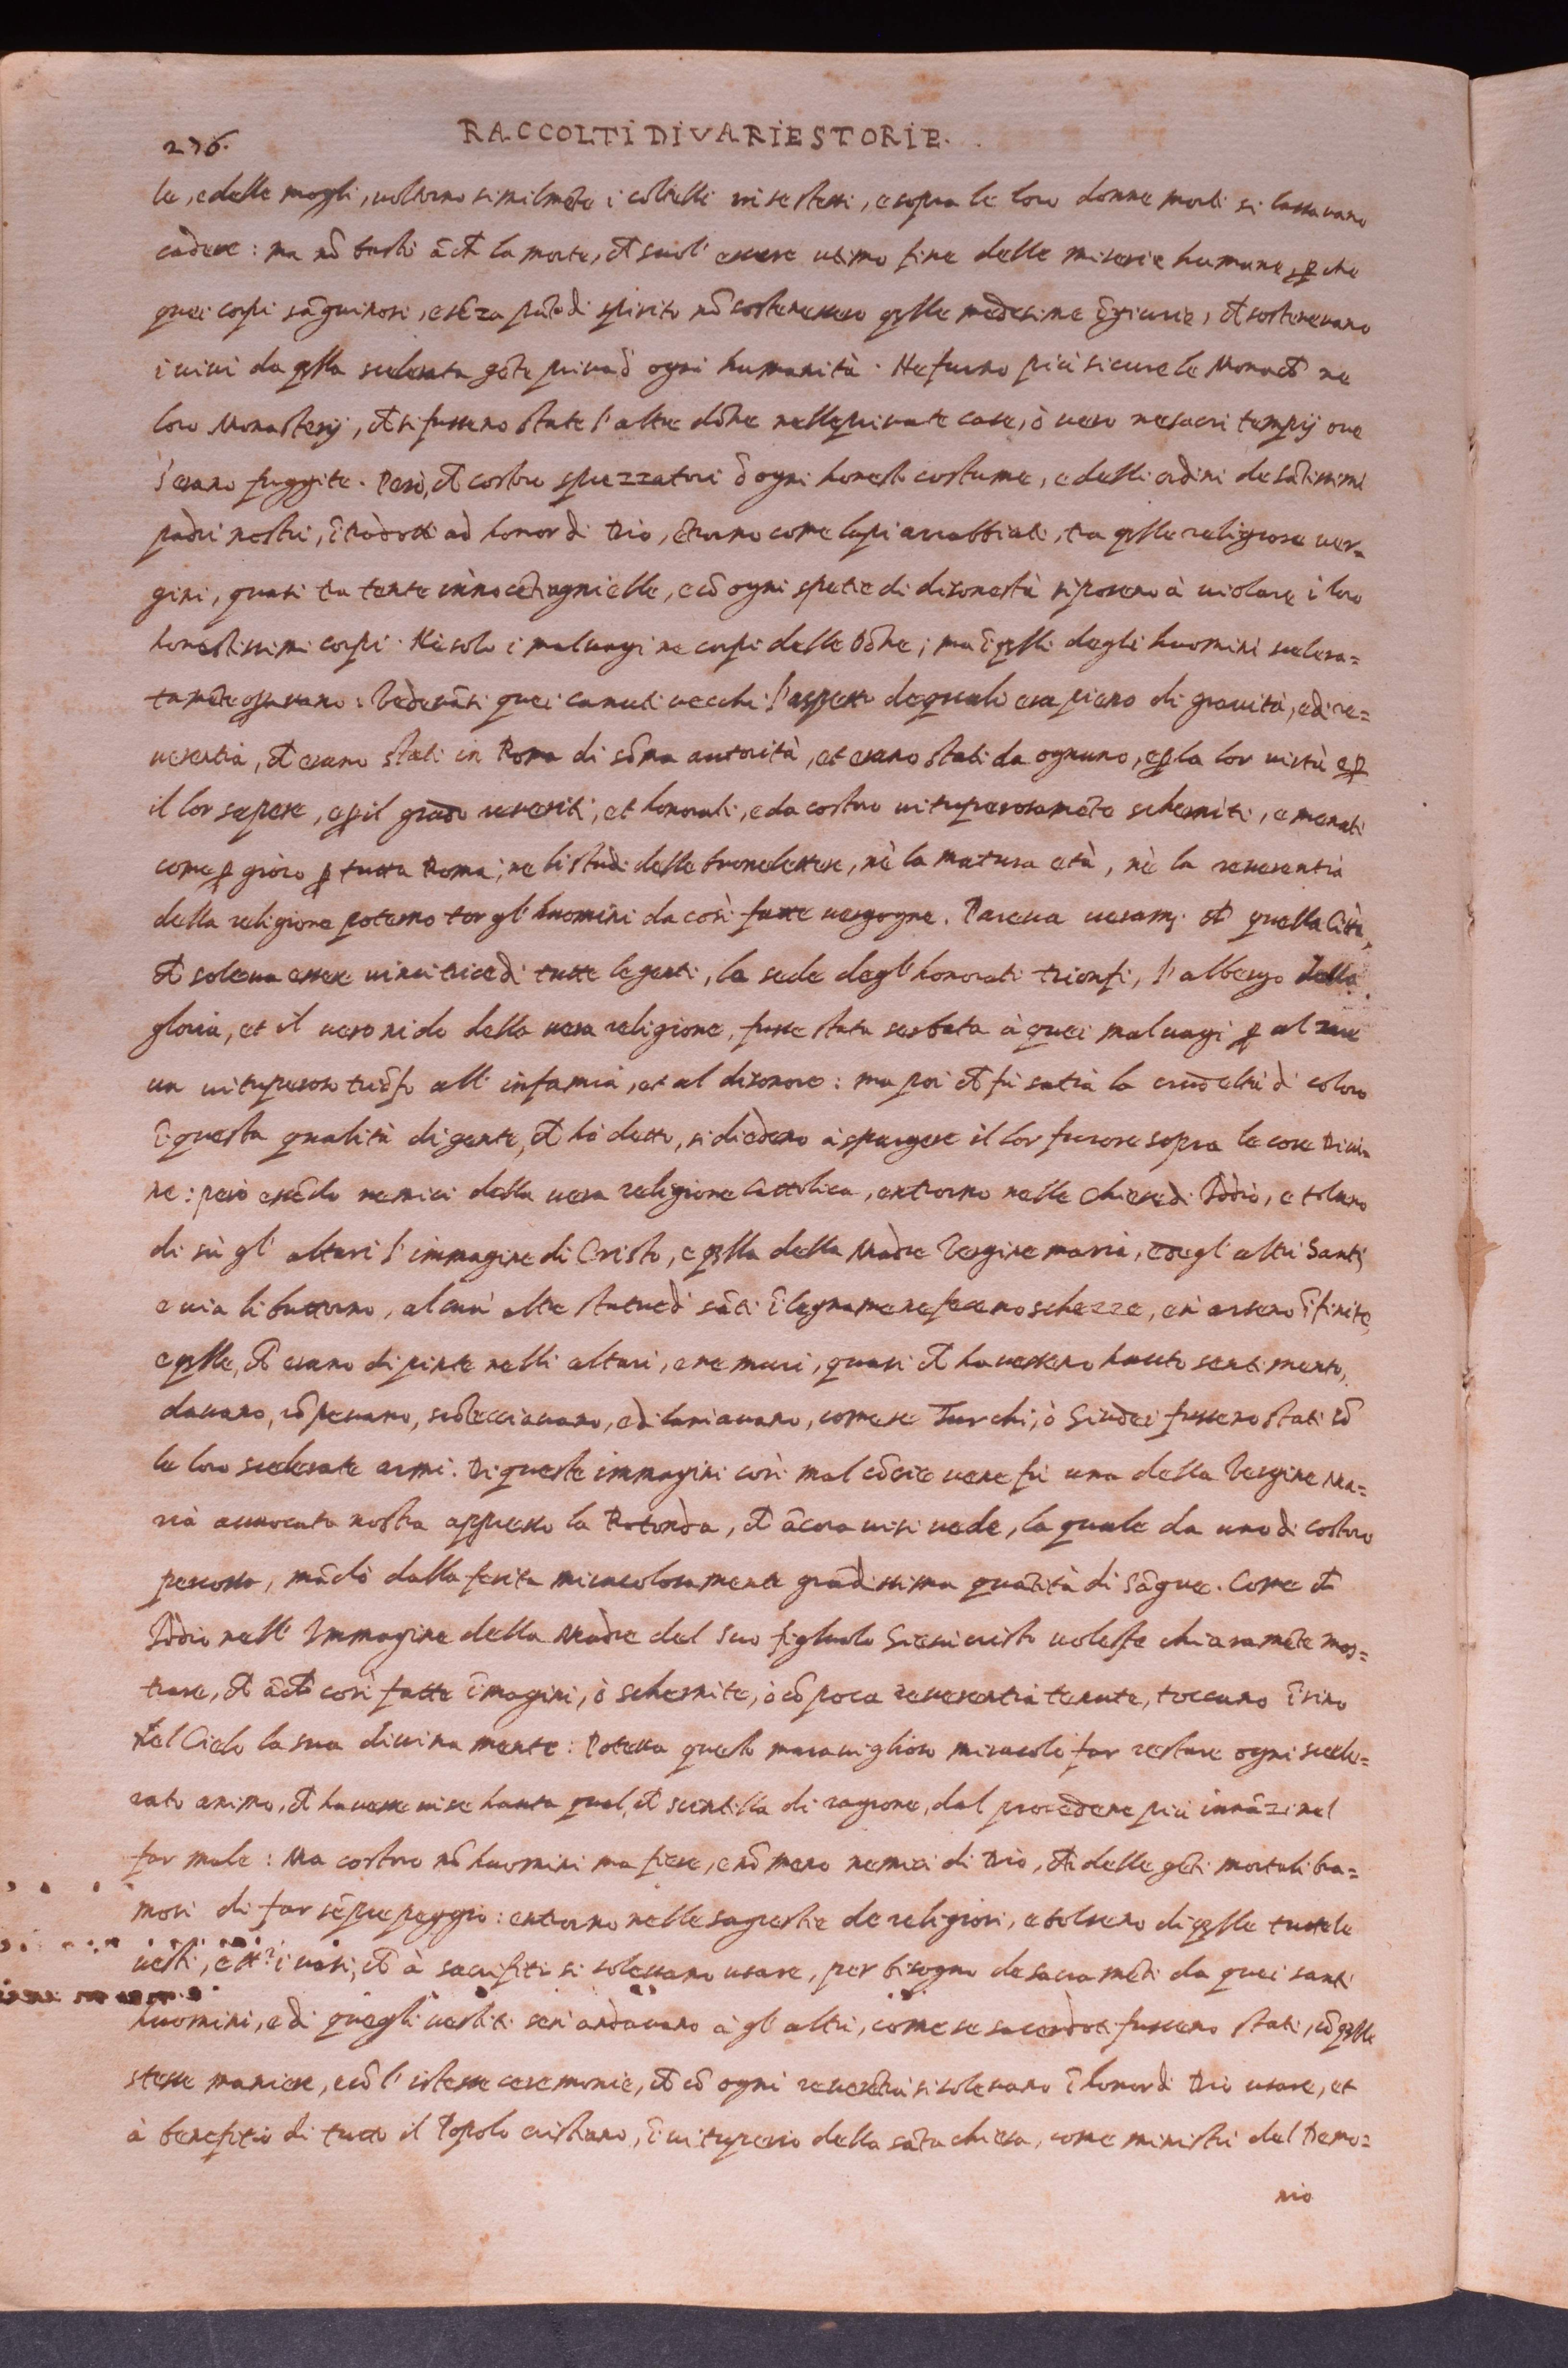 236.
RACCOLTI DI VARIE STORIE.
le, e delle mogli, voltorno similmẽte i coltelli in se stessi, e sopra le loro donne morti si lassavano
cadere: ma nõ bastò ãcħ la morte, cħ suol' essere ultimo fine delle miserie humane, ꝑche
quei corpi sãguinosi, e sẽza pũto di spirito nõ sostenessero qlle medesime ĩgiurie, cħ sostenevano
i vivi da qlla scelerata gẽte priva d'ogni humanità. Ne furno più sicure le Monacħ ne
loro Monasterij, cħ si fussero state l'altre dõne nelle private case, ò vero ne sacri tempij ove
s'erano fuggite. Però, cħ costoro sprezzatori d'ogni honesto costume, e delli ordini de sãtissimi
padri nostri, ĩtrodotti ad honor di Dio, ẽtrorno come lupi arrabbiati, tra qlle religiose ver=
gini, quasi tra tante innocẽti agnielle, e cõ ogni spetie di disonestà si posero à violare i loro
honestissimi corpi. Ne solo i malvagi ne corpi delle Dõne; ma ĩ qlli degli huomini scelera=
tamẽte : Vedevãsi quei canuti vecchi l'aspetto de quali era pieno di gravità, e di re=
verentia, cħ erano stati in Roma di sõma autorità, et erano stati da ognuno, e ꝑ la lor virtù e ꝑ
il lor sapere, e ꝑ il grado reveriti, et honorati, e da costoro vituperosamẽte scherniti, e menati
come ꝑ gioco ꝑ tutta Roma; ne li studi delle buone lettere, nè la matura età, nè la reverentia
della religione poterno tor gl'huomini da così fatte vergogne. Pareva veramẽ. cħ quella Città,
cħ soleva essere vincitrice di tutte le genti, la sede degl'honorati trionfi, l'albergo della
gloria, et il vero nido della vera religione, fusse stata serbata à quei malvagi ꝑ
un vituperoso triõfo all'infamia, et al disonore: ma poi cħ fù satia la crudeltà di coloro
ĩ questa qualità di gente, cħ hò detto, si diedero à spargere il lor furore sopra le cose Divi=
ne: però essẽdo nemici della vera religione Cattolica, entrorno nelle Chiese di Iddio, e tolsero
di sù gl'altari l'immagine di Cristo, e qlla della Madre Vergine maria, e degl'altri Santi
e via li buttorno, alcun'altre statue di sãti ĩ legname ne fecero schezze, e n'arsero ĩfinite,
e qlle, cħ erano dipinte nelli altari, e ne muri, quasi cħ havessero havuto sentimento,
davano, rõpevano, , e dilaniavano, come se Turchi, ò Giudei fussero stati cõ
le loro scelerate armi. Di queste immagini così mal cõcie ve ne fù una della Vergine Ma=
ria avvocata nostra appresso la Rotonda, cħ ãcora vi si vede, la quale da uno di costoro
percossa, mãdò dalla ferita miracolosamente grãdissima quãtità di Sãgue. Come cħ
Iddio nell'Immagine della Madre del suo figliuolo Giesù cristo volesse chiaramẽte mos=
trare, cħ ãcħ così fatte ĩmagini, ò schernite, ò cõ poca reverentia tenute, toccano ĩsino
nel Cielo la sua divina mente: Poteva questo maraviglioso miracolo far restare ogni scele=
rato animo, cħ havesse in se hauta qual, cħ scintilla di ragione, dal procedere più innãzi nel
far male: Ma costoro nõ huomini ma fiere, e nõ meno nemici di Dio, cħ delle gẽti mortali bra=
mosi di far sẽpre peggio: entrorno nelle sagrestie de religiosi, e tolsero di qlle tutte le
vesti, e tt.i i vasi, cħ à sacrifiti si solevano usare, per bisogno de sacramẽti da quei santi
huomini, e di quegli vestiti sen'andavano à gl'altri, come se sacerdoti fussero stati, cõ qlle
stesse maniere, e cõ l'istesse ceremonie, cħ cõ ogni reverẽtia si solevano ĩ honor di Dio usare, et
à benefitio di tutto il Popolo cristiano, ĩ vituperio della sãta chiesa, come ministri del Demo=
nio